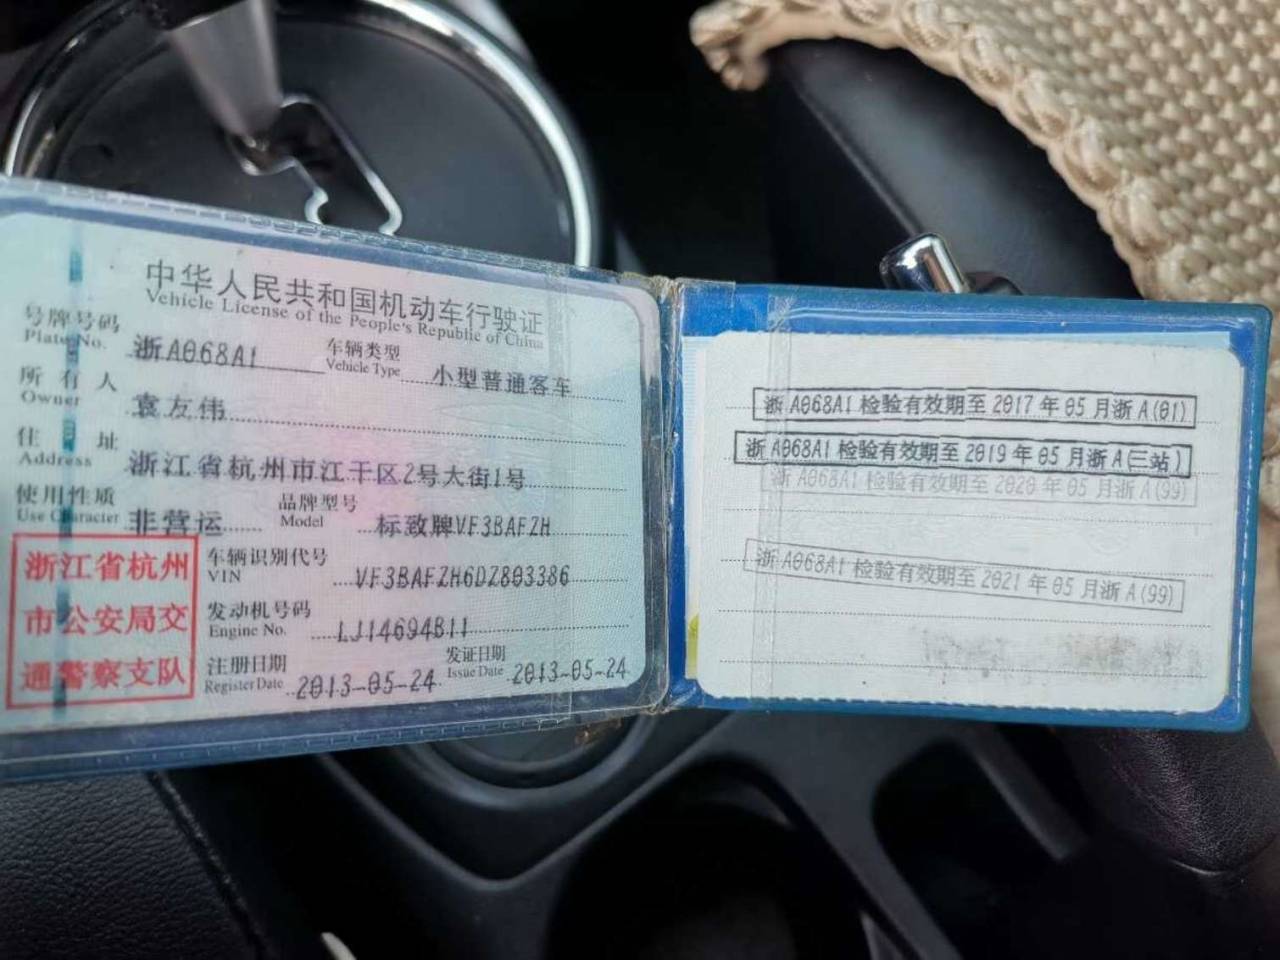 中华人民共和国机动车行驶证
Vehicle License of the People's Republic of China
号牌号码 浙A068A1 车辆类型 小型普通客车
Plate No. Vehicle Type
所有人 袁友伟
Owner
住址 浙江省杭州市江干区2号大街1号
Address
使用性质 非营运 品牌型号 标致牌VF3BAFZH
Use Character Model
浙江省杭州
市公安局交
通警察支队
车辆识别代号 VF3BAFZH6DZ803386
VIN
发动机号码 LJ14694B11
Engine No.
注册日期 2013-05-24 发证日期 2013-05-24
Register Date Issue Date
浙A068A1检验有效期至2017年05月浙A(01)
浙A068A1检验有效期至2019年05月浙A(三站)
浙A068A1检验有效期至2020年05月浙A(99)
浙A068A1检验有效期至2021年05月浙A(99)